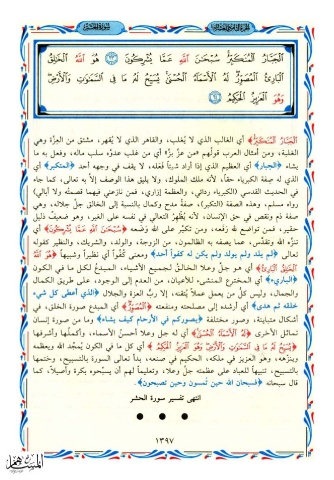 سورة الحشر
ٱلْجَبَّارُ ٱلْمُتَكَبِّرُ سُبْحَٰنَ ٱللَّهِ عَمَّا يُشْرِكُونَ ﴿٢٣﴾ هُوَ ٱللَّهُ ٱلْخَٰلِقُ
ٱلْبَارِئُ ٱلْمُصَوِّرُ لَهُ ٱلْأَسْمَآءُ ٱلْحُسْنَىٰ يُسَبِّحُ لَهُۥ مَا فِى ٱلسَّمَٰوَٰتِ وَٱلْأَرْضِ
وَهُوَ ٱلْعَزِيزُ ٱلْحَكِيمُ ﴿٢٤﴾
أي الغالب الذي لا يُغلب، والقاهر الذي لا يُقهر، مشتق من العزة وهي
الغلبة، ومن أمثال العرب قولُهم «من عزَّ بزَّ» أي من غلب عدوَّه سلب ماله، وفعل به ما
يشاء ﴿الجبار﴾ أي العظيم الذي إذا أراد شيئاً فعله، لا يقف في وجهه أحد ﴿المتكبر﴾ أي
الذي له صفة الكبرياء حقاً، لأنه ملك الملوك، ولا يليق هذا الوصف إلاَّ به تعالى، كما جاء
في الحديث القدسي (الكبرياء ردائي، والعظمة إزاري، فمن نازعني فيهما قصمتُه ولا أبالي)
رواه مسلم، وهذه الصفة (التكبر)، صفةُ مدحٍ وكمال بالنسبة إلى الخالق جلَّ جلاله، وهي
صفة ذم ونقص في حق الإنسان، لأنه يُظهر التعالي في نفسه على الغير، وهو ضعيفٌ ذليل
حقير، فمن تواضع لله رفعه، ومن تكبَّر على الله وضعه ﴿سُبْحَٰنَ ٱللَّهِ عَمَّا يُشْرِكُونَ﴾ أي
تنزَّه الله وتقدَّس، عما يصفه به الظالمون، من الزوجة، والولد، والشريك، والنظير كقوله
تعالى ﴿لم يلد ولم يولد ولم يكن له كفواً أحد﴾ ومعنى كُفُواً أي نظيراً وشبيهاً ﴿هُوَ ٱللَّهُ
ٱلْخَٰلِقُ ٱلْبَارِئُ﴾ أي هو جلَّ وعلا الخالقُ لجميع الأشياء، المبدعُ لكل ما في الكون
﴿البارىء﴾ أي المخترع المنشىء للأعيان، من العدم إلى الوجود، على طريق الكمال
والجمال، وليس كلُّ من يعمل عملاً يُتقنه، إلا ربُّ العزة والجلال ﴿الذي أعطى كل شيء
خلقه ثم هدى﴾ أي أرشده إلى مصلحته ومنفعته ﴿ٱلْمُصَوِّرُ﴾ أي المبدع صورة الخلق، في
أشكال متباينة، وصور مختلفة ﴿يصوركم في الأرحام كيف يشاء﴾ وما من صورة إنسان
تماثل الأخرى ﴿لَهُ ٱلْأَسْمَآءُ ٱلْحُسْنَىٰ﴾ أي له جل وعلا أحسنُ الأسماء، وأكملُها وأشرفها
﴿يُسَبِّحُ لَهُۥ مَا فِى ٱلسَّمَٰوَٰتِ وَٱلْأَرْضِ وَهُوَ ٱلْعَزِيزُ ٱلْحَكِيمُ﴾ أي كل ما في الكون يُمجِّد الله ويعظِّمه
وينزّهه، وهو العزيز في ملكه، الحكيم في صنعه، بدأ تعالى السورة بالتسبيح، وختمها
بالتسبيح، تنبيهاً للعباد على عظمته جلَّ وعلا، وتعليماً لهم أن يسبِّحوه بكرة وأصيلاً، كما
قال سبحانه ﴿فسبحان الله حين تُمسون وحين تصبحون﴾.
انتهى تفسير سورة الحشر
١٣٩٧